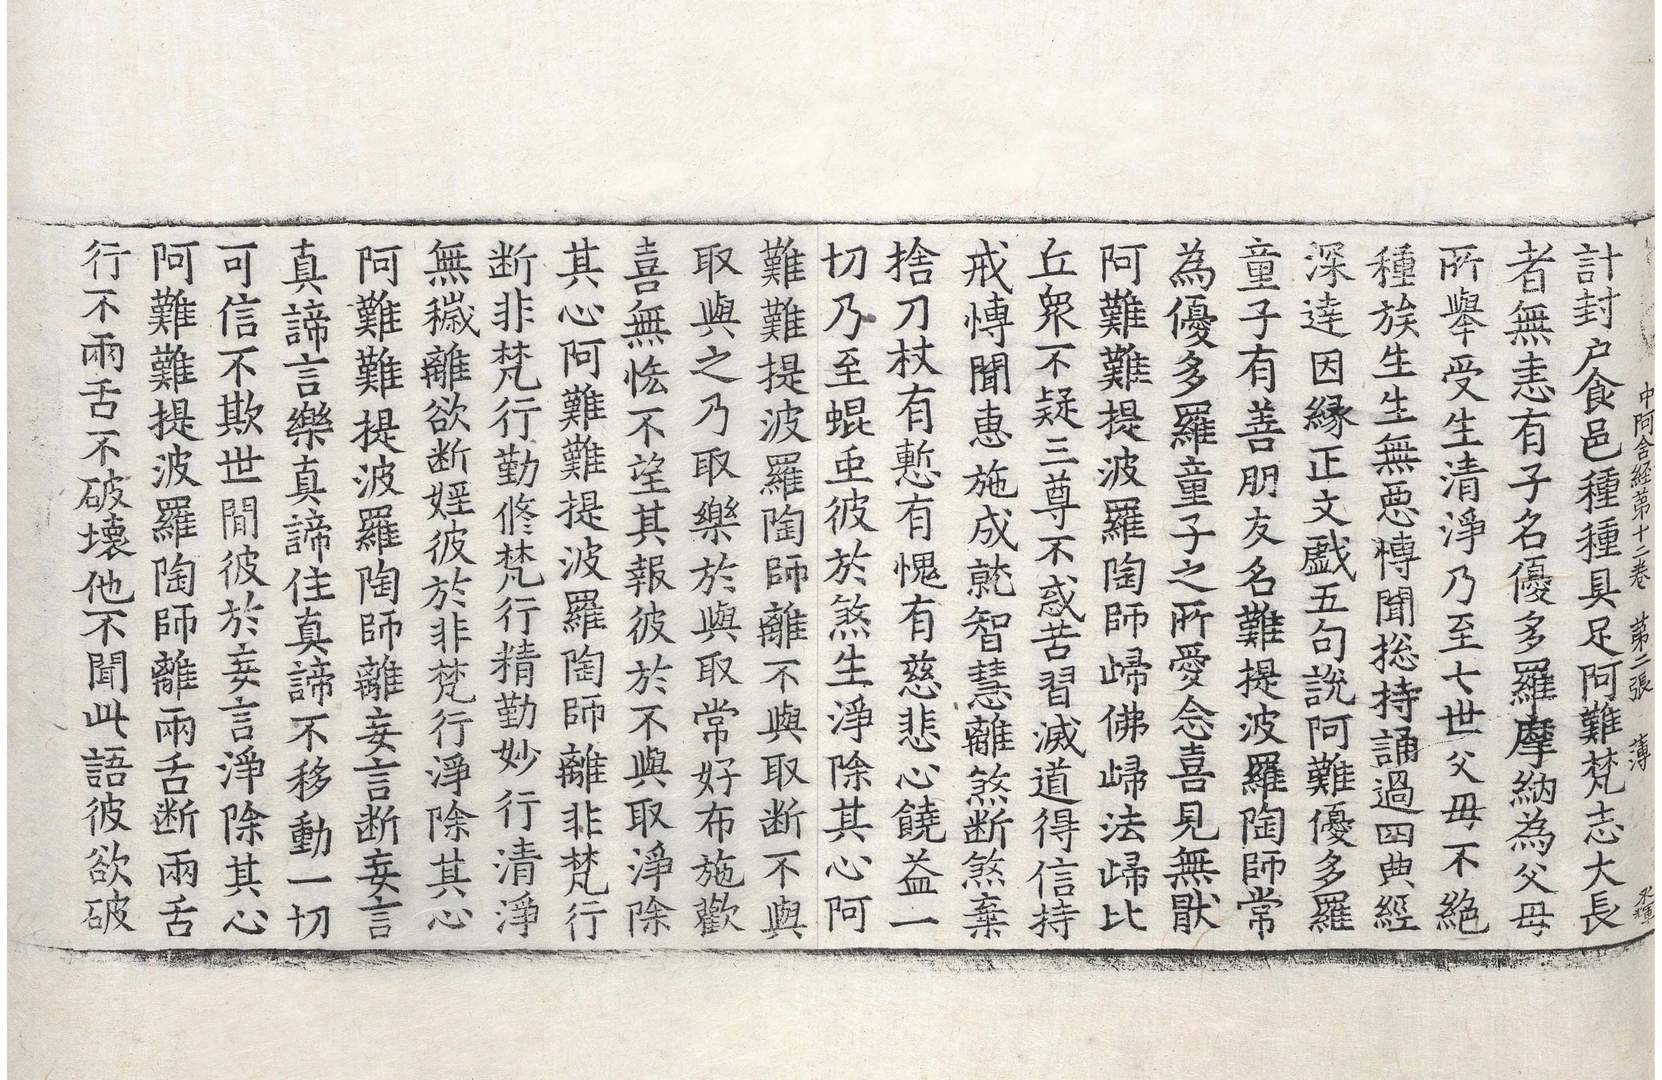 中阿含經第十二卷 第二張 薄
計封户食邑種種具足阿難梵志大長
者無恚有子名優多羅摩納為父母
所舉受生清淨乃至七世父母不絶
種族生生無惡博聞捴持誦過四典經
深逹因縁正文戲五句説阿難優多羅
童子有善朋友名難提波羅陶師常
為優多羅童子之所愛念喜見無猒
阿難難提波羅陶師歸佛歸法歸比
丘衆不疑三尊不惑苦習滅道得信持
戒博聞惠施成就智慧離煞断煞棄
捨刀杖有慙有愧有慈悲心饒益一
切乃至蜫虫彼於煞生淨除其心阿
難難提波羅陶師離不與取断不與
取與之乃取樂於與取常好布施歡
喜無悋不望其報彼於不與取淨除
其心阿難難提波羅陶師離非梵行
断非梵行勤修梵行精勤妙行清淨
無穢離欲断婬彼於非梵行淨除其心
阿難難提波羅陶師離妄言断妄言
真諦言樂真諦住真諦不移動一切
可信不欺世間彼於妄言淨除其心
阿難難提波羅陶師離兩舌断兩舌
行不兩舌不破壞他不聞此語彼欲破